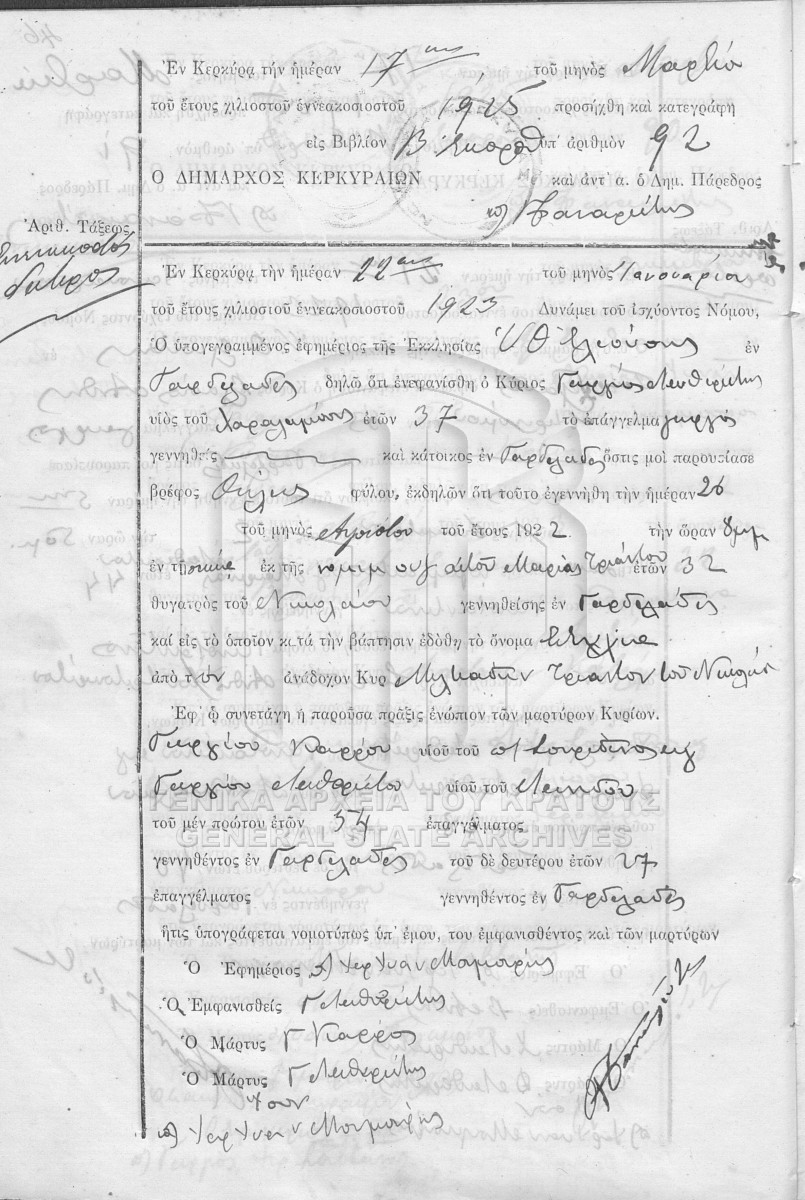 Ἐν Κερκύρᾳ τὴν ἡμέραν 17 ην, τοῦ μηνὸς Μαρτίου
τοῦ ἔτους χιλιοστοῦ ἐννεακοσιοστοῦ 1925 προσήχθη καὶ κατεγράφη
εἰς Βιβλίον Β ὑπ᾽ ἀριθμὸν 92
Ο ΔΗΜΑΡΧΟΣ ΚΕΡΚΥΡΑΙΩΝ καὶ ἀντ᾽ α. ὁ Δημ. Πάρεδρος
Ἀριθ. Τάξεως
Ἐν Κερκύρᾳ τὴν ἡμέραν 22 τοῦ μηνὸς Ἰανουαρίου
τοῦ ἔτους χιλιοστοῦ ἐννεακοσιοστοῦ 1923 Δυνάμει τοῦ ἰσχύοντος Νόμου,
Ὁ ὑπογεγραμμένος ἐφημέριος τῆς Ἐκκλησίας ΥΘ Ἐλεούσης ἐν
Γαρδελάδες δηλῶ ὅτι ἐνεφανίσθη ὁ Κύριος Γεώργιος Λευθεριώτης
υἱὸς τοῦ Χαραλάμπους ἐτῶν 37 τὸ ἐπάγγελμα γεωργὸς
γεννηθεὶς καὶ κάτοικος ἐν Γαρδελάδες ὅστις μοι παρουσίασε
βρέφος θήλεος φύλου, ἐκδηλῶν ὅτι τοῦτο ἐγεννήθη τὴν ἡμέραν 26
τοῦ μηνὸς Αὐγούστου τοῦ ἔτους 1922. τὴν ὥραν
ἐν τῇ οικία ἐκ τῆς νομίμου συζ αὐτοῦ Μαρίας Τριάντου ἐτῶν 32
θυγατρὸς τοῦ Νικολάου γεννηθείσης ἐν Γαρδελάδες
καί εἰς τὸ ὁποῖον κατά τὴν βάπτισιν ἐδόθη τὸ ὄνομα
ἀπὸ τὸν ἀνάδοχον Κυρ Μιλτιάδην Τριάντον τοῦ Νικολάου
Ἐφ᾽ ᾧ συνετάγη ἡ παροῦσα πρᾶξις ἐνώπιον τῶν μαρτύρων Κυρίων.
Γεωργίου Καρρου υἱοῦ τοῦ Σπυρίδωνος
Γεωργίου Λευθεριώτου υἱοῦ τοῦ
ΓΕΝΙΚΑ ΑΡΧΕΙΑ ΤΟΥ ΚΡΑΤΟΥΣ
τοῦ μέν πρώτου ἐτῶν 54 ἐπαγγέλματος
GENERAL STATE ARCHIVES
γεννηθέντος ἐν Γαρδελάδες τοῦ δὲ δευτέρου ἐτῶν 27
ἐπαγγέλματος γεννηθέντος ἐν Γαρδελάδες
ἥτις ὑπογράφεται νομοτύπως ὑπ᾽ ἐμου, του ἐμφανισθέντος καὶ τῶν μαρτύρων
Ὁ Ἐφημέριος
Ὁ Ἐμφανισθείς Γ Λευθεριώτης
Ὁ Μάρτυς Γ Καρρος
Ὁ Μάρτυς Γ Λευθεριώτης